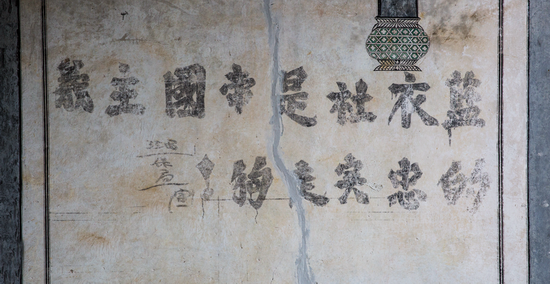 藍衣社是帝國主義
的忠实走狗！